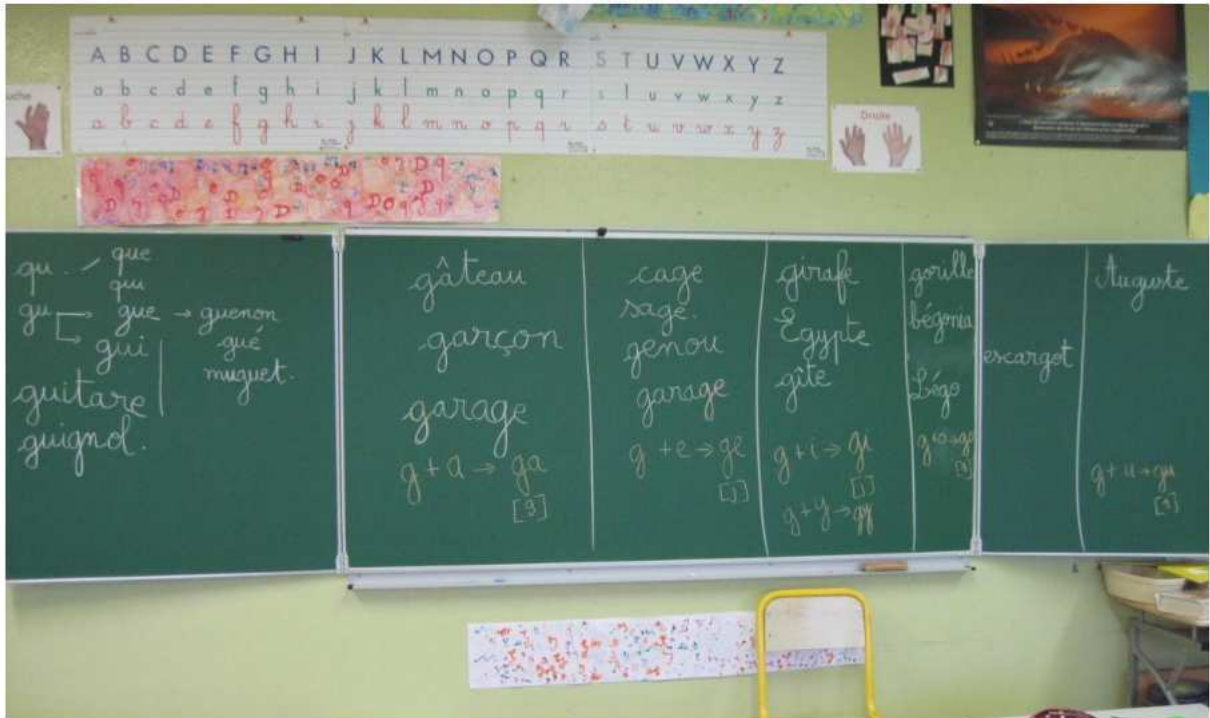 A B C D E F G H I J K L M N O P Q R S T U V W X Y Z
a b c d e f g h i j k l m n o p q r s t u v w x y z
a b c d e f g h i j k l m n o p q r s t u v w x y z
uche
Droite
qu que
qui
gu → gue → guenon
→ gui gué
muguet.
guitare
guignol.
gâteau
garçon
garage
g + a → ga
[g]
cage
sage.
genou
garage
g + e → ge
[j]
girafe
Égypte
gîte
g + i → gi
[j]
g + y → gy
gorille
bégonia
Légo
g + o → go
[g]
escargot
Auguste
g + u → gu
[g]